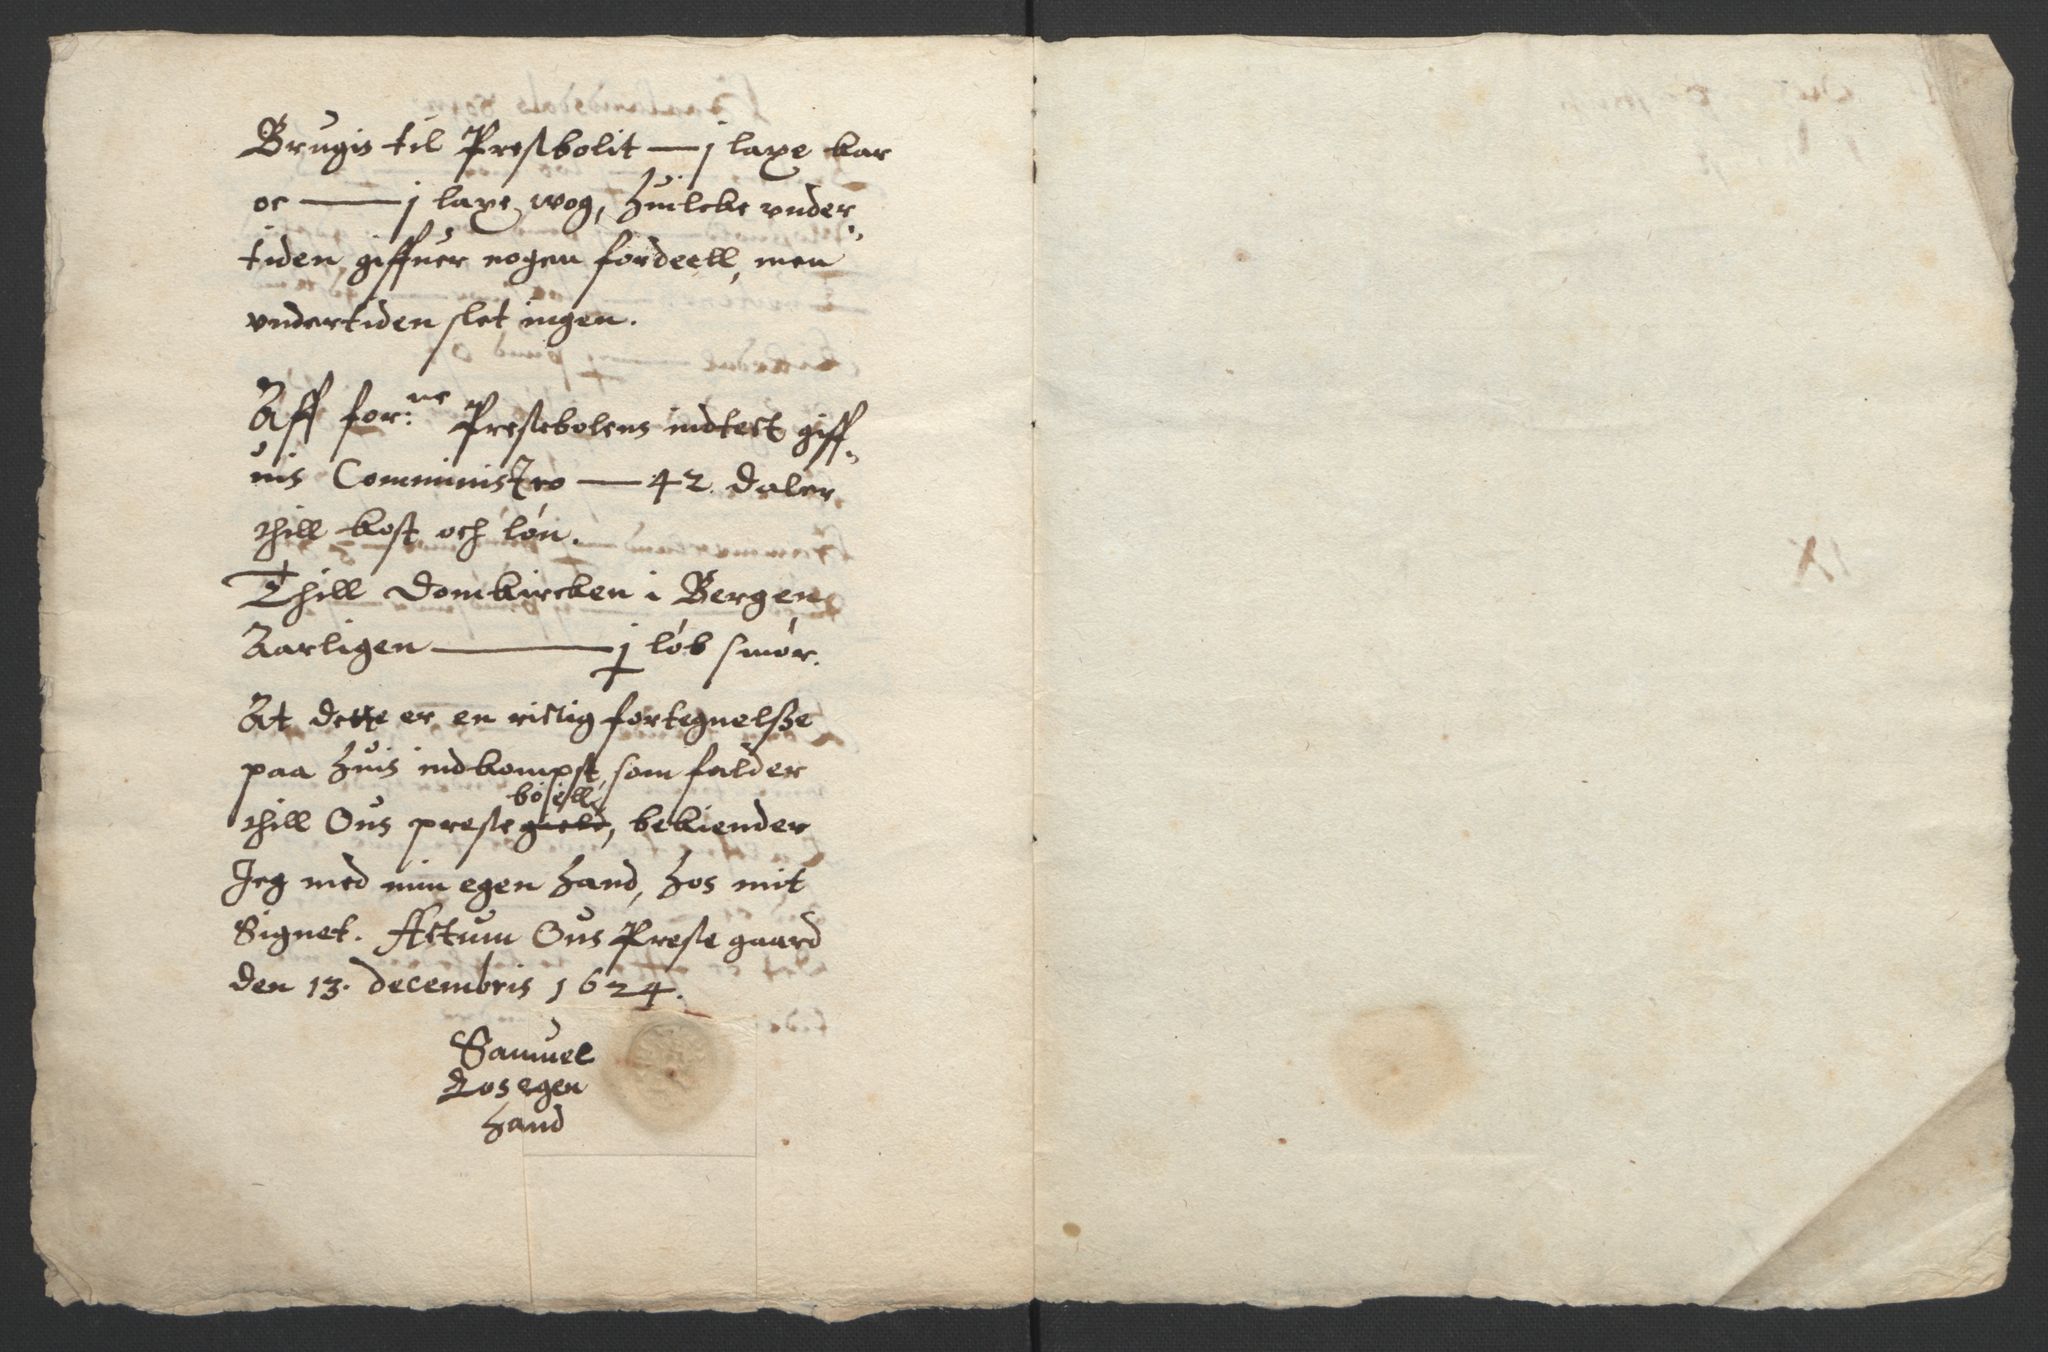 Brugis til Prestbolit — j laxe kar
oc — j laxe wog, huilcke vnder-
tiden giffuer nogen fordeell, men
vndertiden slet ingen.
Aff for:ne Prestebolens indtect giff-
uis Comministro — 42 daler
thill kost och løn.
Thill Domkircken i Bergen
Aarligen — j løb smør.
At dette er en rictig fortegnelsze
paa huis indkompst, som falder
bosell
thill Ous preste gield, bekiender
Jeg med min egen hand, hos mit
Signet. Actum Ous Preste gaard
den 13. decembris 1624.
Samuel
egen
hand